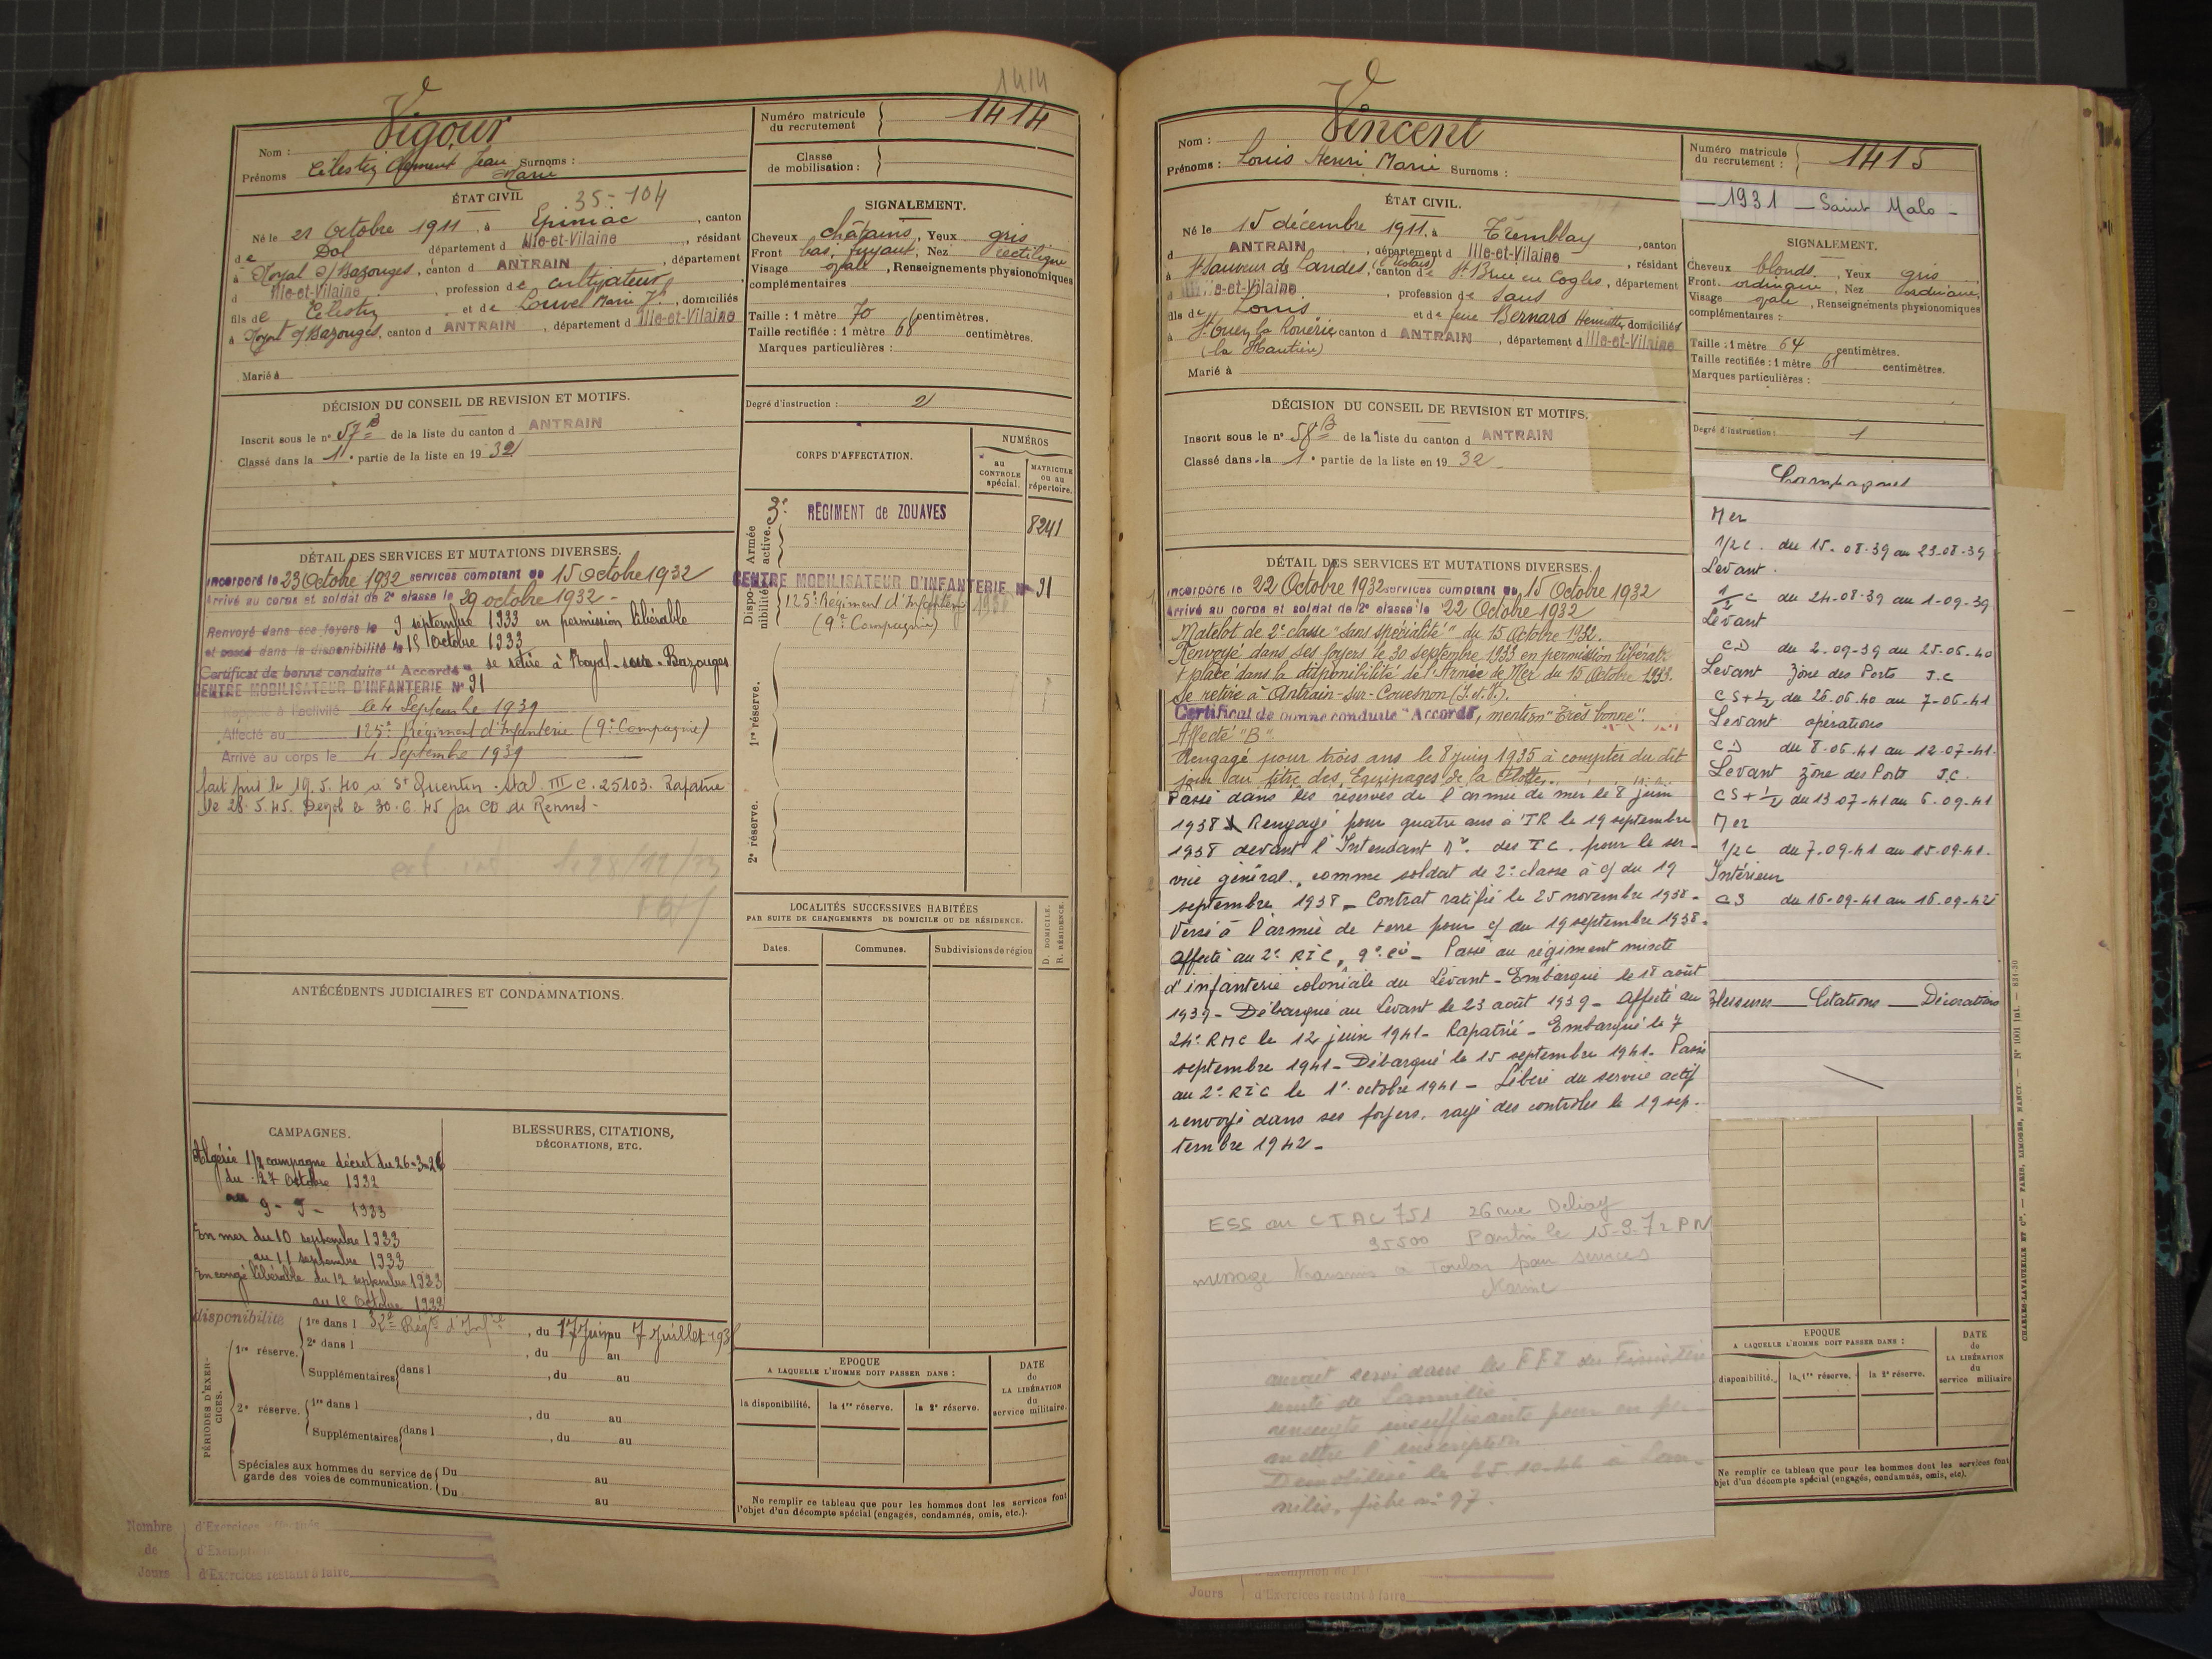 1414
Vigour
Nom :
Prénoms Célestin Clément Jean Marie Surnoms :
Numéro matricule du recrutement 1414
Classe de mobilisation :
ÉTAT CIVIL 35-104
Né le 21 Octobre 1911, à Epiniac, canton
de Dol département d Ille-et-Vilaine, résidant
à Noyal s/ Bazouges, canton d ANTRAIN, département
d Ille-et-Vilaine, profession de cultivateur
fils de Célestin et de Louvel Marie, domiciliés
à Noyal s/ Bazouges, canton d ANTRAIN, département d Ille-et-Vilaine
Marié à
SIGNALEMENT.
Cheveux châtains, Yeux gris
Front bas, fuyant, Nez rectiligne
Visage ovale, Renseignements physionomiques
complémentaires
Taille : 1 mètre 70 centimètres.
Taille rectifiée : 1 mètre 68 centimètres.
Marques particulières :
Degré d'instruction : 2
DÉCISION DU CONSEIL DE REVISION ET MOTIFS.
Inscrit sous le n° 57 B de la liste du canton d ANTRAIN
Classé dans la 1e partie de la liste en 1932
CORPS D'AFFECTATION.
NUMÉROS
au CONTROLE spécial.
MATRICULE ou au répertoire.
Armée active.
3e RÉGIMENT de ZOUAVES 8241
Disponibilité
CENTRE MOBILISATEUR D'INFANTERIE N° 91
125e Régiment d'Infanterie
(9e Compagnie)
1re réserve.
2e réserve.
DÉTAIL DES SERVICES ET MUTATIONS DIVERSES.
Incorporé le 23 Octobre 1932 services comptant de 15 Octobre 1932
Arrivé au corps et soldat de 2e classe le 29 octobre 1932 -
Renvoyé dans ses foyers le 9 septembre 1933 en permission libérable
et passé dans la disponibilité le 15 Octobre 1933
Certificat de bonne conduite "Accordé" se retire à Noyal-sous-Bazouges
CENTRE MOBILISATEUR D'INFANTERIE N° 91
Rappelé à l'activité le 4 Septembre 1939
Affecté au 125e Régiment d'Infanterie (9e Compagnie)
Arrivé au corps le 4 Septembre 1939
fait pris le 19.5.40 à St Quentin. Stal. III C. 25103. Rapatrié
le 28.5.45. Dégol le 30.6.45 par CD de Rennes -
ANTÉCÉDENTS JUDICIAIRES ET CONDAMNATIONS.
LOCALITÉS SUCCESSIVES HABITÉES
PAR SUITE DE CHANGEMENTS DE DOMICILE OU DE RÉSIDENCE.
D. DOMICILE.
R. RÉSIDENCE.
Dates.
Communes.
Subdivisions de région
CAMPAGNES.
Algérie 1/2 campagne décret du 26-3-26
du 27 Octobre 1932
au 9-9-1933
En mer du 10 septembre 1933
au 11 septembre 1933
En congé libérable du 12 septembre 1933
BLESSURES, CITATIONS,
DÉCORATIONS, ETC.
PÉRIODES D'EXERCICES.
disponibilité
1re réserve.
1re dans l , du 17 Juin au 7 Juillet 193
2e dans l , du au
Supplémentaires dans l , du au
2e réserve.
1re dans l , du au
Supplémentaires dans l , du au
Spéciales aux hommes du service de garde des voies de communication.
Du au
Du au
EPOQUE
A LAQUELLE L'HOMME DOIT PASSER DANS :
la disponibilité.
la 1re réserve.
la 2e réserve.
DATE de LA LIBÉRATION du service militaire.
Ne remplir ce tableau que pour les hommes dont les services font
l'objet d'un décompte spécial (engagés, condamnés, omis, etc.).
Nombre de Jours
d'Exercices effectués
d'Exercices restant à faire
Vincent
Nom :
Prénoms : Louis Henri Marie Surnoms :
Numéro matricule du recrutement : 1415
- 1931 - Saint Malo -
ÉTAT CIVIL.
Né le 15 décembre 1911, à Tremblay, canton
d ANTRAIN, département d Ille-et-Vilaine, résidant
à St Sauveur de Landes, canton de St Brice en Cogles, département
d Ille-et-Vilaine, profession de Sans
fils de Louis et de feue Bernard Henriette, domiciliés
à St Ouen la Rouërie canton d ANTRAIN, département d Ille-et-Vilaine
Marié à
SIGNALEMENT.
Cheveux blonds, Yeux gris
Front ordinaire, Nez ordinaire,
Visage ovale, Renseignements physionomiques
complémentaires :
Taille : 1 mètre 64 centimètres.
Taille rectifiée : 1 mètre 61 centimètres.
Marques particulières :
Degré d'instruction : 1
DÉCISION DU CONSEIL DE REVISION ET MOTIFS.
Inscrit sous le n° 58 B de la liste du canton d ANTRAIN
Classé dans la 1e partie de la liste en 1932
DÉTAIL DES SERVICES ET MUTATIONS DIVERSES.
Incorporé le 22 Octobre 1932 services comptant du 15 Octobre 1932
Arrivé au corps et soldat de 2e classe le 22 Octobre 1932
Matelot de 2e classe "sans spécialité" du 15 Octobre 1932.
Renvoyé dans ses foyers le 30 septembre 1933 en permission libérat.
& placé dans la disponibilité de l'Armée de Mer du 15 Octobre 1933.
Se retire à Antrain-sur-Couesnon (I.et.V.).
Certificat de bonne conduite "Accordé", mention "Très bonne".
Affecté "B".
Rengagé pour trois ans le 8 juin 1935 à compter du dit
jour au titre des Equipages de la Flotte.
Passé dans les réserves de l'armée de mer le 8 juin
1938 Rengagé pour quatre ans à TR le 19 septembre
1938 devant l'Intendant Mre. des TC. pour le ser-
vice général, comme soldat de 2e classe à c/ du 19
septembre 1938 - Contrat ratifié le 25 novembre 1938 -
Versé à l'armée de terre pour c/ du 19 septembre 1938.
Affecté au 2e RIC, 9e cie - Passé au régiment mixte
d'infanterie coloniale du Levant - Embarqué le 18 août
1939 - Débarqué au Levant le 23 août 1939 - Affecté au
24e RMC le 12 juin 1941 - Rapatrié - Embarqué le 7
septembre 1941 - Débarqué le 15 septembre 1941. Passé
au 2e RIC le 1er octobre 1941 - Libéré du service actif
renvoyé dans ses foyers, rayé des contrôles le 19 sep-
tembre 1942 -
ESS au CTAC 751 26 rue Delizy
Pantin le 15-9-72
message transmis à Toulon pour services
Marine
aurait servi dans les FFI du Finistère
unité de Lannilis.
renseigts insuffisants pour en per-
mettre l'inscription
Démobilisé le 25.10.44 à Lan-
nilis, fiche n° 97.
Campagnes
Mer
1/2 C. du 15.08.39 au 23.08.39
Levant.
1/2 C du 24.08.39 au 1.09.39
Levant
CD du 2.09.39 au 25.06.40
Levant Zone des Ports T.C
CS + 1/2 du 26.06.40 au 7.06.41
Levant opérations
CD du 8.06.41 au 12.07.41.
Levant Zone des Ports T.C.
CS + 1/2 du 13.07.41 au 6.09.41
Mer
1/2 C du 7.09.41 au 15.09.41.
Intérieur
CS du 16.09.41 au 16.09.42
Blessures - Citations - Décorations
EPOQUE
A LAQUELLE L'HOMME DOIT PASSER DANS :
la disponibilité.
la 1re réserve.
la 2e réserve.
DATE de LA LIBÉRATION du service militaire
Ne remplir ce tableau que pour les hommes dont les services font
l'objet d'un décompte spécial (engagés, condamnés, omis, etc).
Jours d'Exercices restant à faire
CHARLES-LAVAUZELLE ET Cie. — PARIS, LIMOGES, NANCY — N° 1001 Int. — 831-30